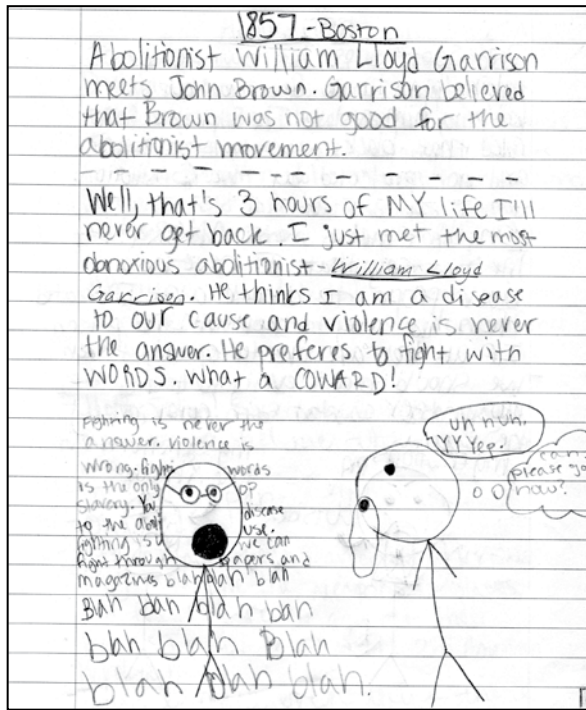 1857-Boston
Abolitionist William Lloyd Garrison
meets John Brown. Garrison believed
that Brown was not good for the
abolitionist movement.
Well, that's 3 hours of MY life I'll
never get back. I just met the most
obnoxious abolitionist-William Lloyd
Garrison. He thinks I am a disease
to our cause and violence is never
the answer. He preferes to fight with
WORDS. What a COWARD!
Fighting is never the
answer. Violence is
wrong. words
is the only
slavery. You disease
to the use.
fighting is we can
fight through papers and
magazines blah blah blah
Blah blah blah blah
blah blah Blah
blah blah blah.
uh nuh.
YYYep.
please go
now?